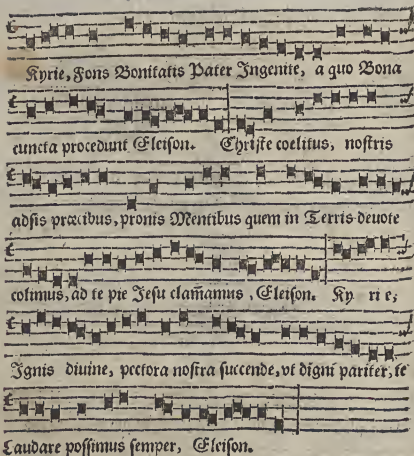 Kyrie, Fons Bonitatis Pater Ingenite, a quo Bona
cuncta procedunt Eleison. Christe coelitus, nostris
adsis præcibus, pronis Mentibus quem in Terris deuote
colimus, ad te pie Jesu clam̃amus, Eleison. Ky rie,
Ignis diuine, pectora nostra succende, vt digni pariter, te
Laudare possimus semper, Eleison.